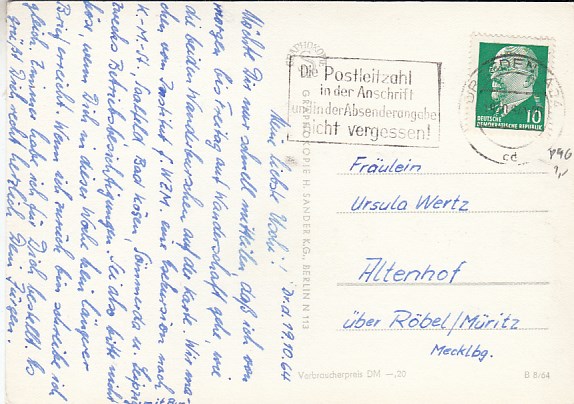 Meine liebste Uschi! Drd. 19.10.64
Möchte Dir nur schnell mitteilen, daß ich von
morgen bis Freitag auf Wanderschaft gehe, wie
die beiden Wandersburschen auf der Karte. Wir ma
chen vom Institut f. WZM. eine Exkursion nach
K.-M.-St., Saalfeld, Bad Kösen, Sömmerda u. Leipzig
zwecks Betriebsbesichtigungen. Sei also bitte nicht
böse, wenn Dich in dieser Woche kein längerer
Brief erreicht. Wenn ich zurück bin schreibe ich
gleich. Zimmer habe ich für Dich bestellt. Es
grüßt Dich recht herzlich Dein Jürgen.
GRAPHOKOPIE H. SANDER KG., BERLIN N 113
Die Postleitzahl
in der Anschrift
und in der Absenderangabe
nicht vergessen!
DRESDEN
cd
10
DEUTSCHE
DEMOKRATISCHE REPUBLIK
Fräulein
Ursula Wertz
Altenhof
über Röbel/Müritz
Mecklbg.
Verbraucherpreis DM —,20
B 8/64